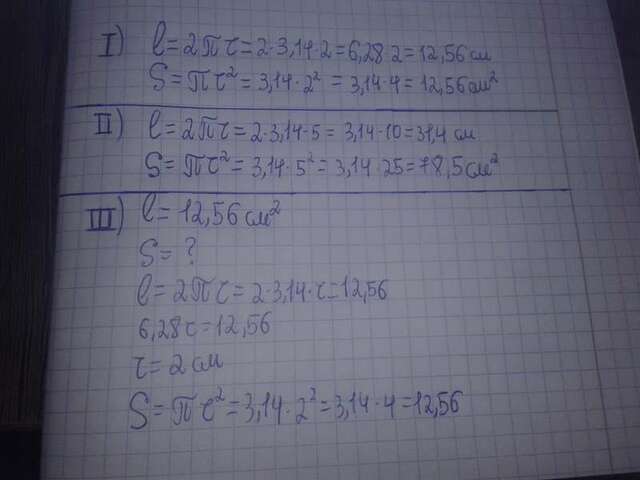 I) l = 2πr = 2·3,14·2 = 6,28·2 = 12,56 см
S = πr² = 3,14·2² = 3,14·4 = 12,56 см²
II) l = 2πr = 2·3,14·5 = 3,14·10 = 31,4 см
S = πr² = 3,14·5² = 3,14·25 = 78,5 см²
III) l = 12,56 см²
S = ?
l = 2πr = 2·3,14·r = 12,56
6,28r = 12,56
r = 2 см
S = πr² = 3,14·2² = 3,14·4 = 12,56